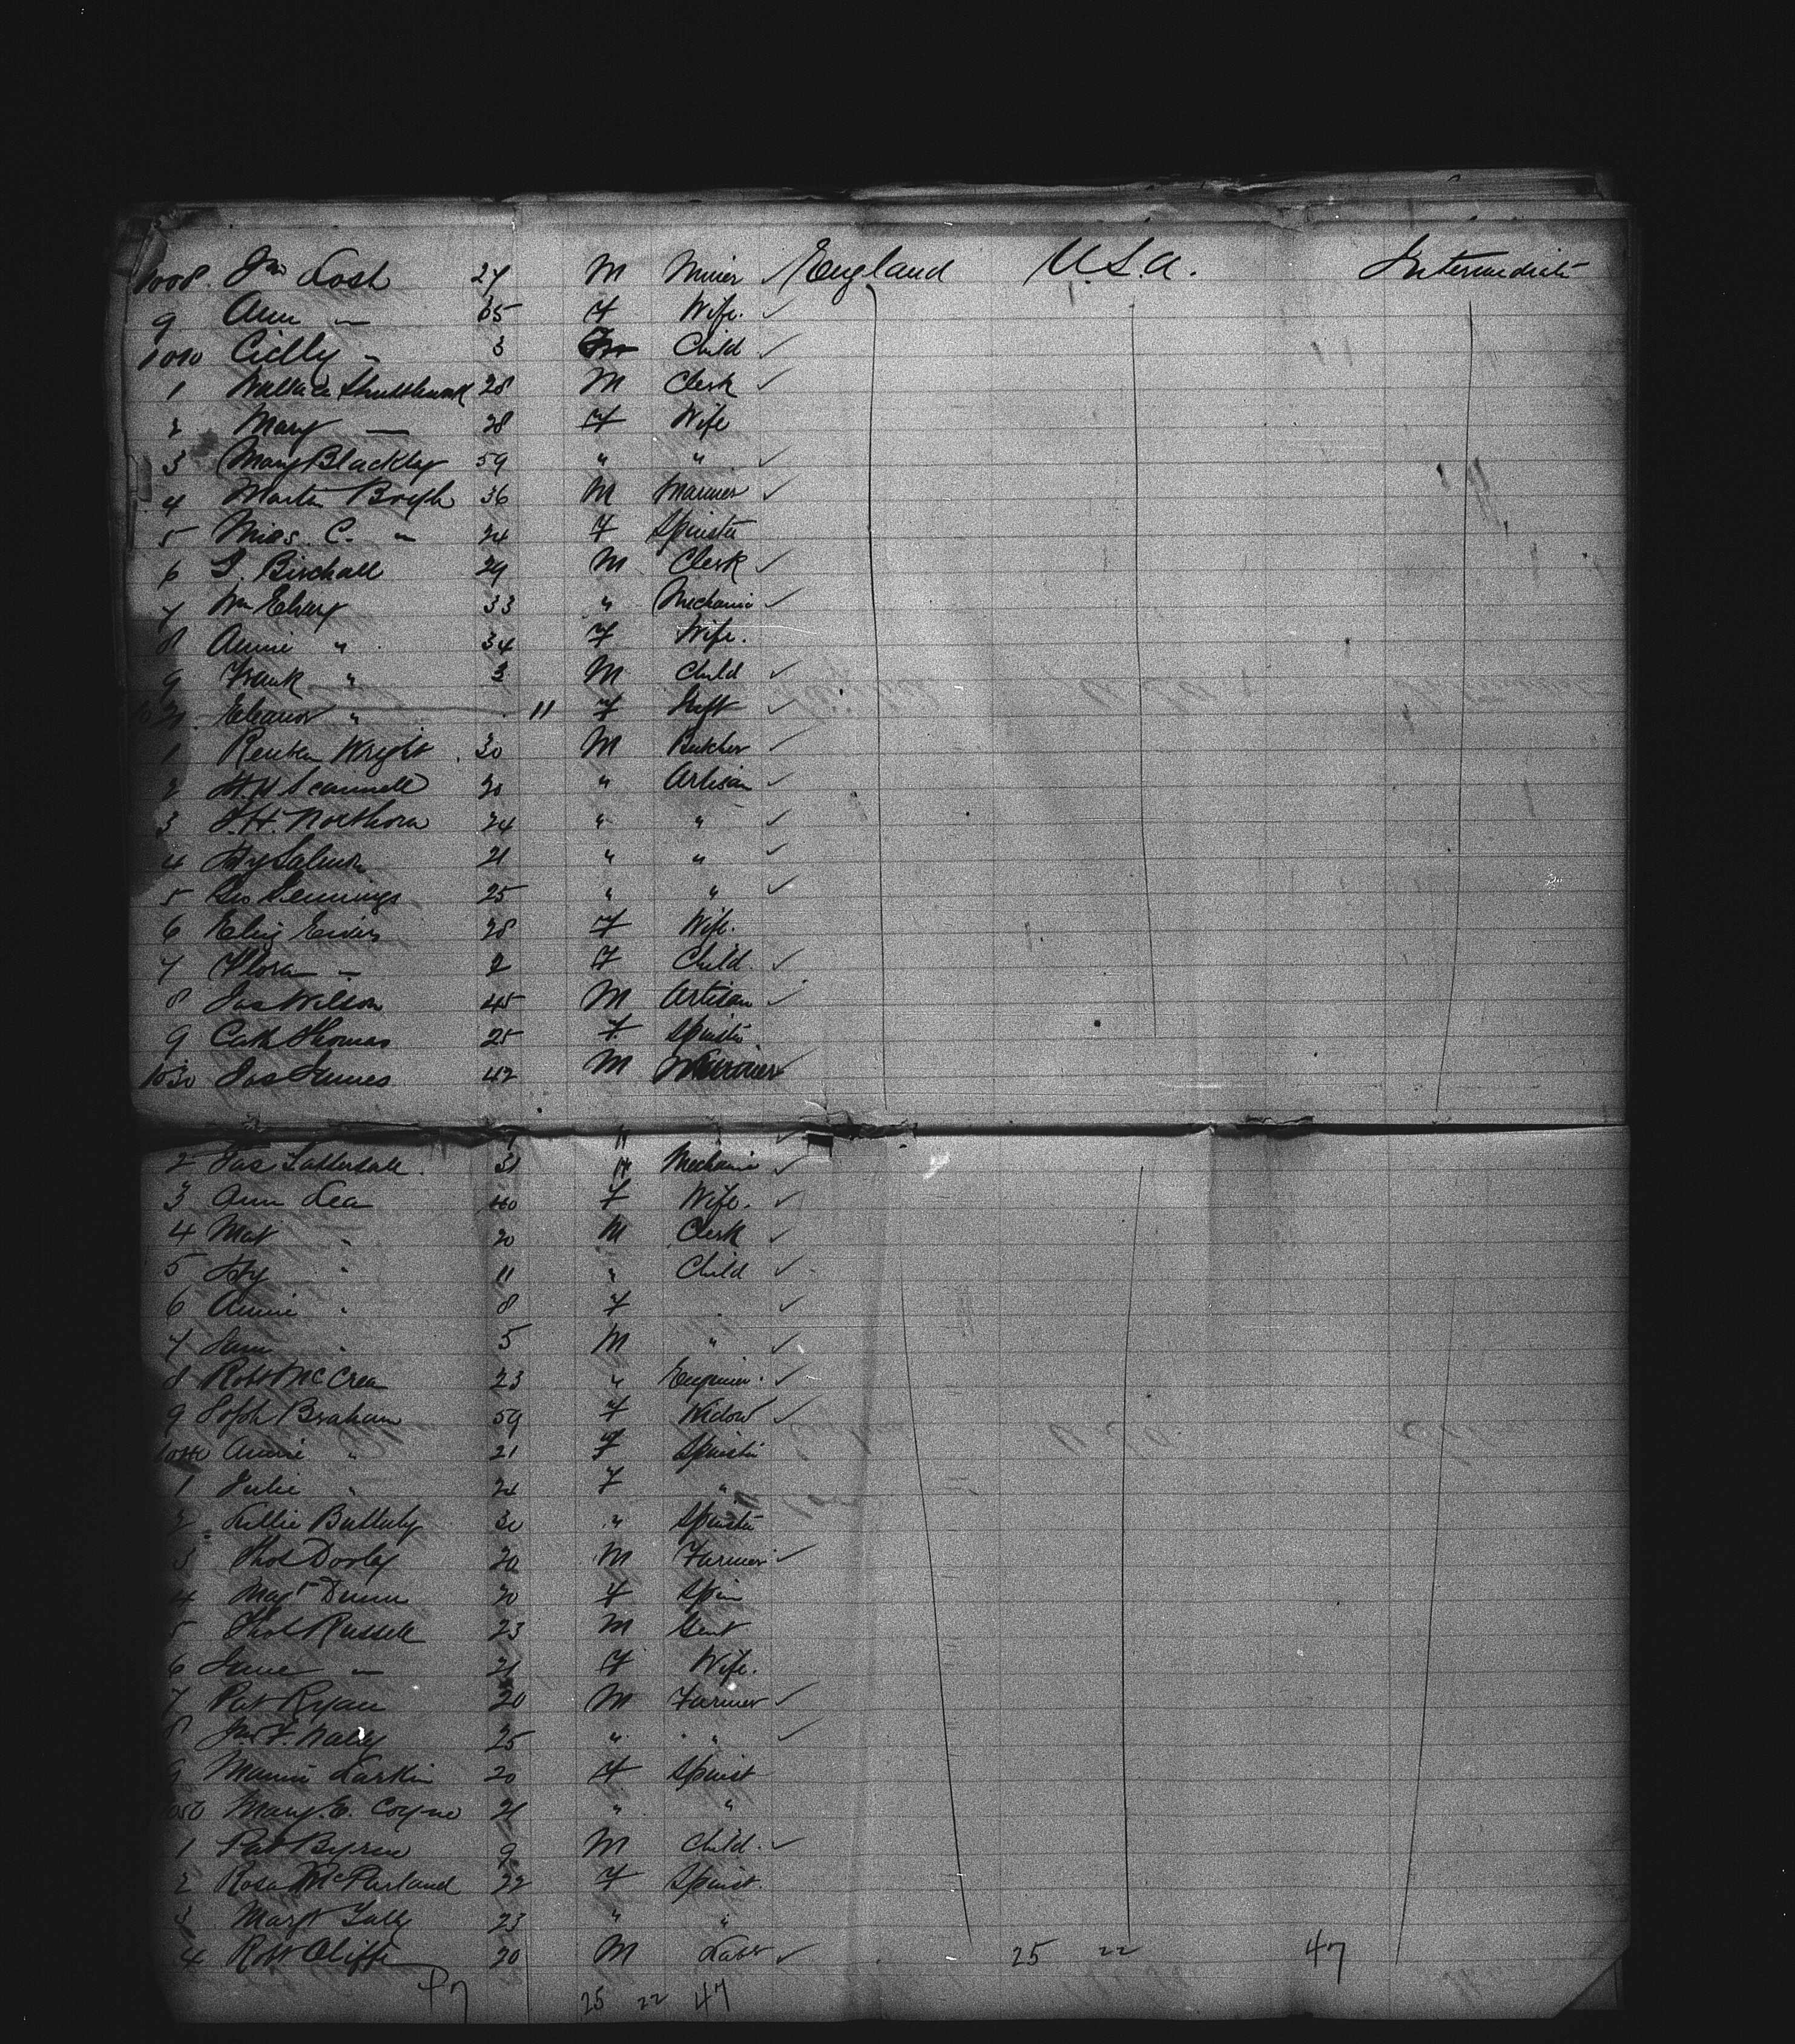 1008. Jno Losh 27 M Miner ✓ England U.S.A. Intermediate
9 Ann — 65 F Wife. ✓
1010 Cicily - 3 Child ✓
1 Wallace 28 M Clerk ✓
2 Mary — 28 F Wife
3 Mary Blackley 59 " " ✓
4 Martin 36 M ✓
5 Miss. C. " 24 F Spinster
6 Birchall 29 M Clerk ✓
7 Wm 33 " Mechanic ✓
8 Annie " 34 F Wife.
9 Frank " 3 M Child ✓
Eleanor " 11 F ✓
1 Reuben Wright 30 M Butcher ✓
2 20 " Artisan ✓
3 J.H. Northorn 24 " " ✓
4 Hy Salmon 21 " " ✓
5 Geo Jennings 25 " " ✓
6 Eliz 28 F Wife.
7 Flora — 2 F Child. ✓
8 Jas Wilson 45 M Artisan ✓
9 Cath Thomas 25 F Spinster
1030 Jas 42 M ✓
2 Jas 31 Mechanic ✓
3 Ann Lea 40 F Wife. ✓
4 Mat " 20 M Clerk ✓
5 Hy " 11 " Child ✓
6 Annie " 8 F " ✓
7 Sam " 5 M " ✓
8 Robt McCrea 23 " Engineer. ✓
9 Soph Braham 59 F Widow ✓
1040 Annie " 21 F Spinster
1 Julie " 24 F "
2 Lillie 30 " Spinster
3 Thos Dooley 20 M Farmer ✓
4 Magt Dunn 20 F Spin
5 Thos Russell 23 M Gent
6 Jane — 21 F Wife.
7 Pat Ryan 20 M Farmer ✓
8 Jno F. Nally 25 " " ✓
9 Mamie Larkin 20 F Spinst
1050 Mary. E. Coyne 21 " "
1 Pat Byrne 9 M Child. ✓
2 Rosa McParland 22 F Spinst.
3 Margt Tully 23 " "
4 Robt 20 M Labr ✓ 25 22 47
47 25 22 47